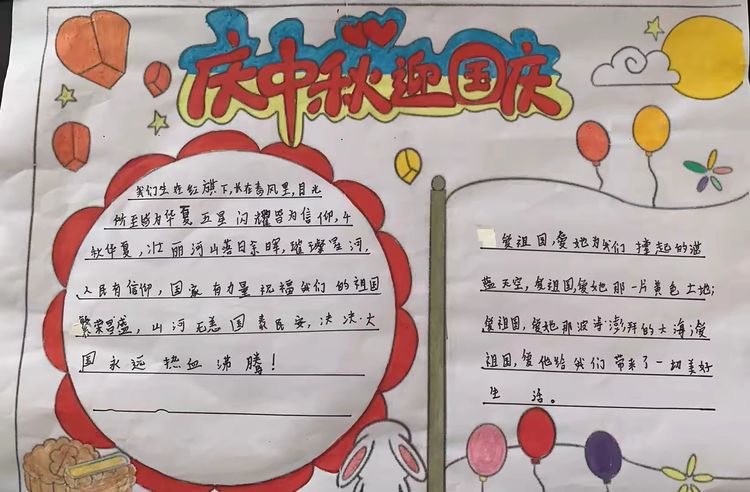 庆中秋迎国庆
我们生在红旗下,长在春风里,目光
所至皆为华夏五星闪耀皆为信仰,
秋华夏,壮丽河山落日余晖,璀璨星河,
人民有信仰,国家有力量祝福我们的祖国
繁荣昌盛,山河无恙国泰民安,决决大
国永远热血沸腾!
爱祖国,爱她为我们撑起的湛
蓝天空,爱祖国爱她那一片黄色土地;
爱祖国,爱她那波涛澎拜的大海;爱
祖国,爱他给我们带来了一切美好
生活。